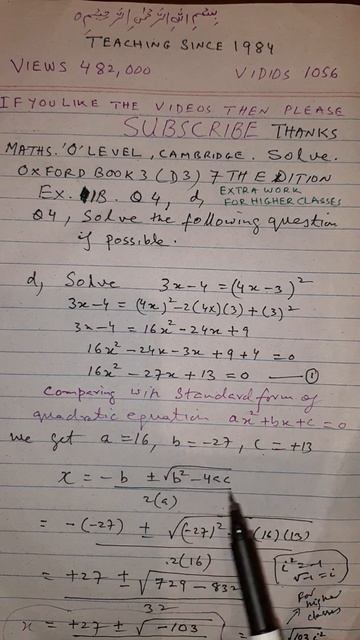 بسم اللہ الرحمٰن الرحیم
TEACHING SINCE 1984
VIEWS 482,000 VIDIOS 1056
IF YOU LIKE THE VIDEOS THEN PLEASE
SUBSCRIBE THANKS
MATHS. 'O' LEVEL, CAMBRIDGE. Solve.
OXFORD BOOK 3 (D3) 7TH EDITION
Ex. 1B. Q4, d, EXTRA WORK
FOR HIGHER CLASSES
Q4, Solve the following question
if possible.
d, Solve 3x-4 = (4x-3)²
3x-4 = (4x)²-2(4x)(3)+(3)²
3x-4 = 16x²-24x+9
16x²-24x-3x+9+4=0
16x²-27x+13=0 —①
Comparing with Standard form of
quadratic equation ax²+bx+c=0
we get a=16, b=-27, c=+13
x = -b ±√b²-4ac
2(a)
= -(-27) ± √(-27)² (16)(13)
2(16)
i²=-1
√-1=i
= +27 ± √729-832
32
For
higher
classes
x = +27 ± √-103 = 103i²